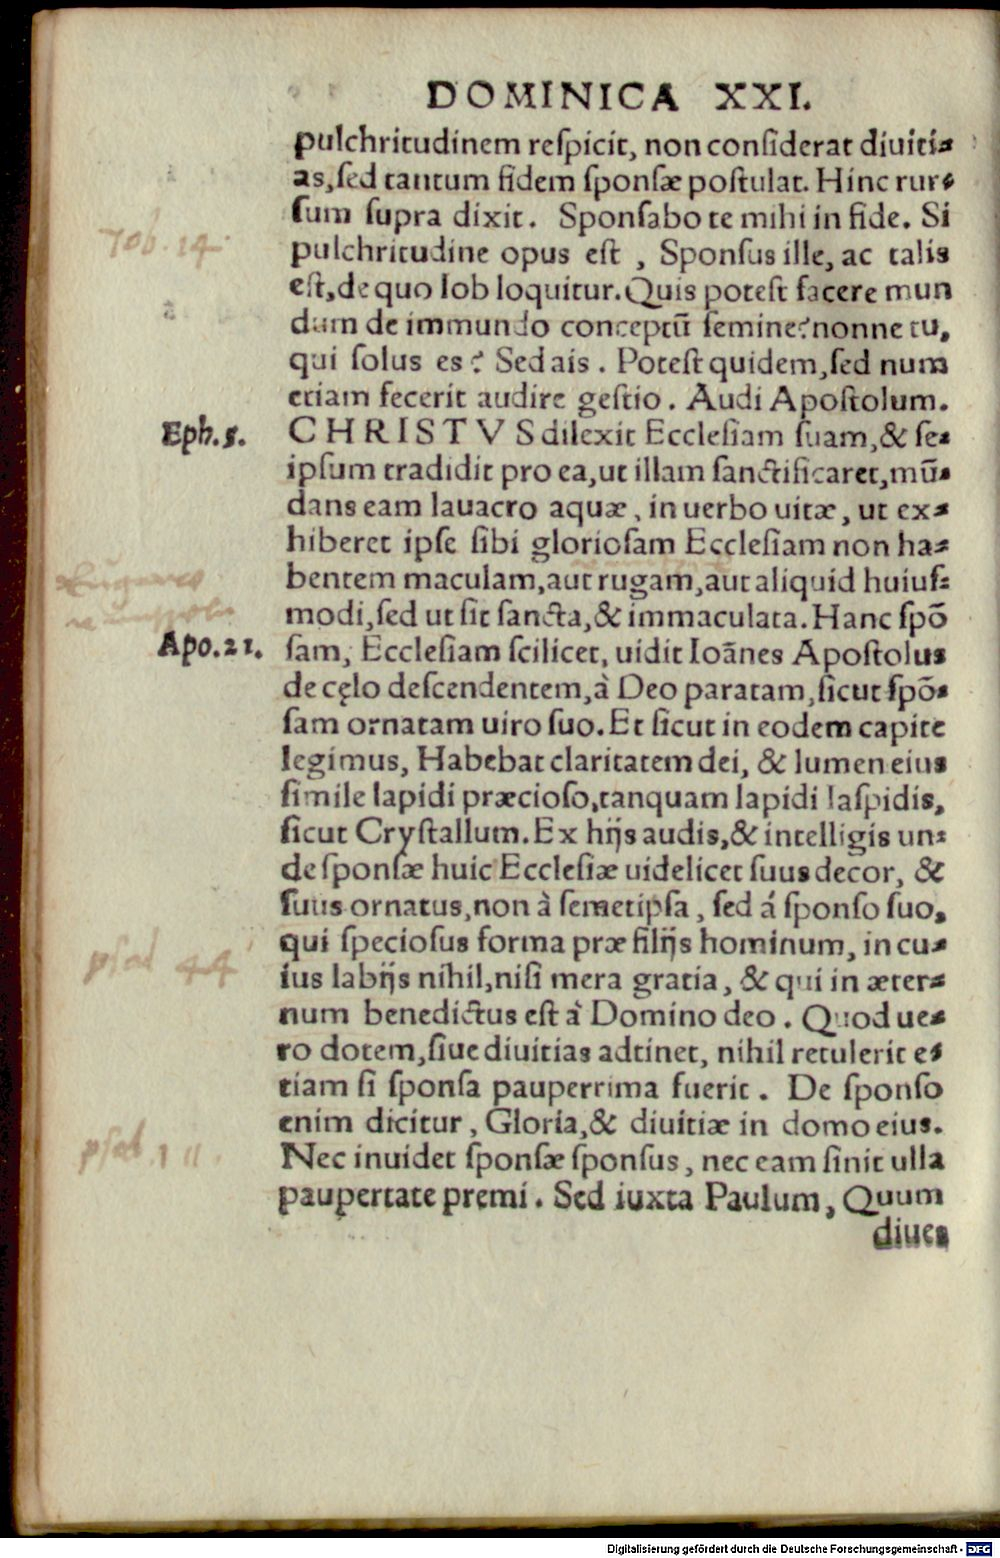 DOMINICA XXI.
pulchritudinem reſpicit, non conſiderat diuiti⸗
as, ſed tantum fidem ſponſæ poſtulat. Hinc rur⸗
ſum ſupra dixit. Sponſabo te mihi in fide. Si
Job. 14.
pulchritudine opus eſt, Sponſus ille, ac talis
eſt, de quo Iob loquitur. Quis poteſt facere mun
dum de immundo conceptū ſemine? nonne tu,
qui ſolus es? Sed ais. Poteſt quidem, ſed num
etiam fecerit audire geſtio. Audi Apoſtolum.
Eph. 5.
CHRISTVS dilexit Eccleſiam ſuam, & ſe⸗
ipſum tradidit pro ea, ut illam ſanctificaret, mū⸗
dans eam lauacro aquæ, in uerbo uitæ, ut ex⸗
hiberet ipſe ſibi glorioſam Eccleſiam non ha⸗
bentem maculam, aut rugam, aut aliquid huiuſ⸗
modi, ſed ut ſit ſancta, & immaculata. Hanc ſpō
Apo. 21.
ſam, Eccleſiam ſcilicet, uidit Ioānes Apoſtolus
de cęlo deſcendentem, à Deo paratam, ſicut ſpō⸗
ſam ornatam uiro ſuo. Et ſicut in eodem capite
legimus, Habebat claritatem dei, & lumen eius
ſimile lapidi præcioſo, tanquam lapidi Iaſpidis,
ſicut Cryſtallum. Ex hijs audis, & intelligis un⸗
de ſponſæ huic Eccleſiæ uidelicet ſuus decor, &
ſuus ornatus, non à ſemetipſa, ſed á ſponſo ſuo,
psal 44
qui ſpecioſus forma præ filijs hominum, in cu⸗
ius labijs nihil, niſi mera gratia, & qui in æter⸗
num benedictus eſt à Domino deo. Quod ue⸗
ro dotem, ſiue diuitias adtinet, nihil retulerit e⸗
tiam ſi ſponſa pauperrima fuerit. De ſponſo
enim dicitur, Gloria, & diuitiæ in domo eius.
psal. 111.
Nec inuidet ſponſæ ſponſus, nec eam ſinit ulla
paupertate premi. Sed iuxta Paulum, Quum
diues
Digitalisierung gefördert durch die Deutsche Forschungsgemeinschaft - DFG